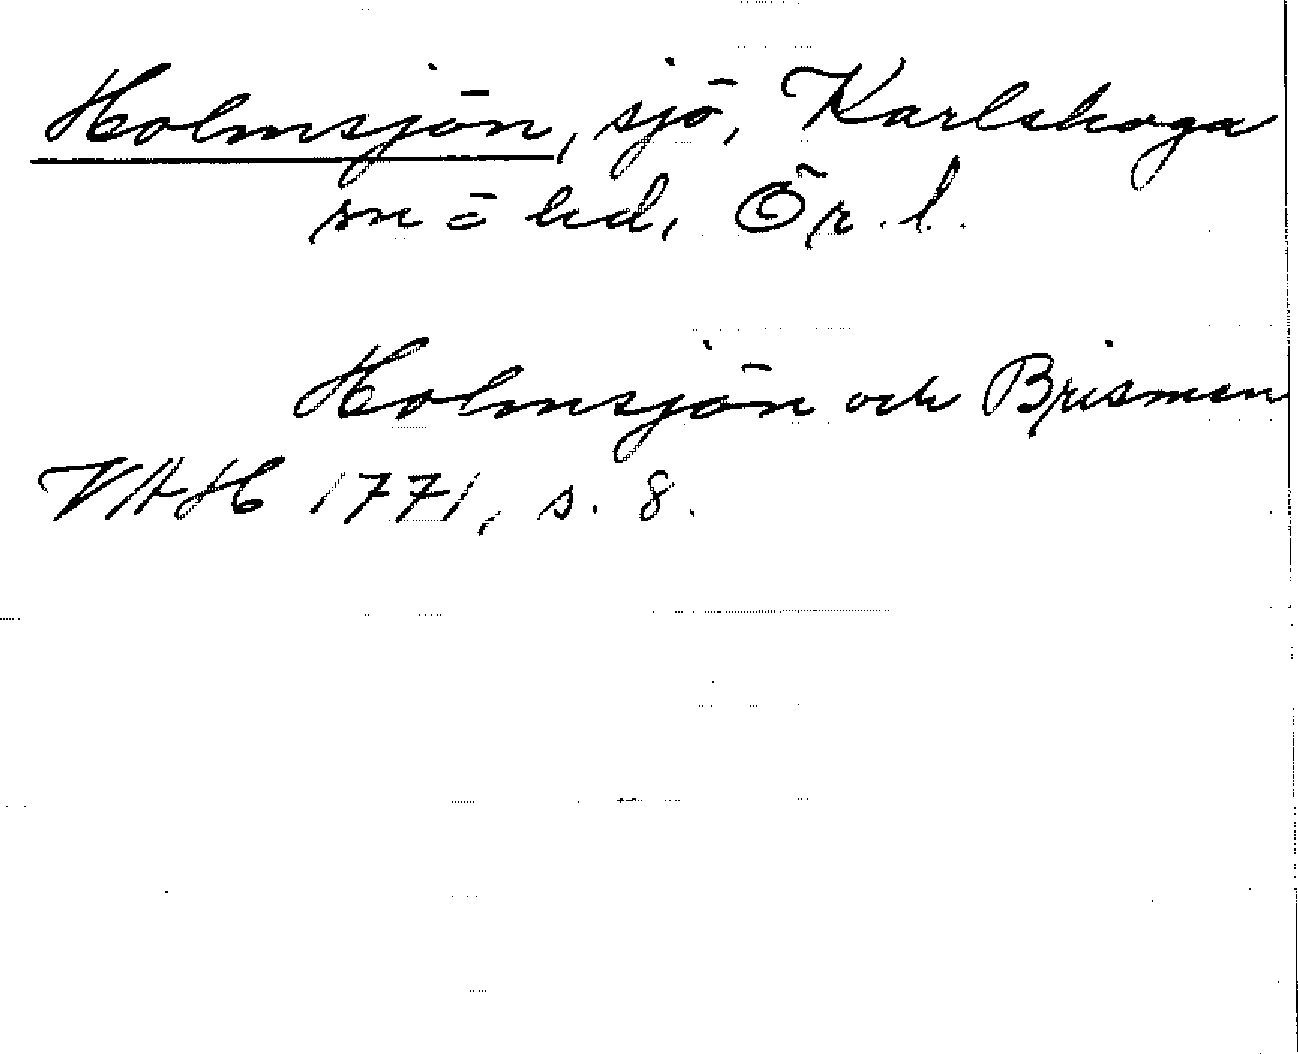 Holmsjön, sjö, Karlskoga
sn o hd, Ör. l.
Holmsjön och Brismen
VAH 1771, s. 8.